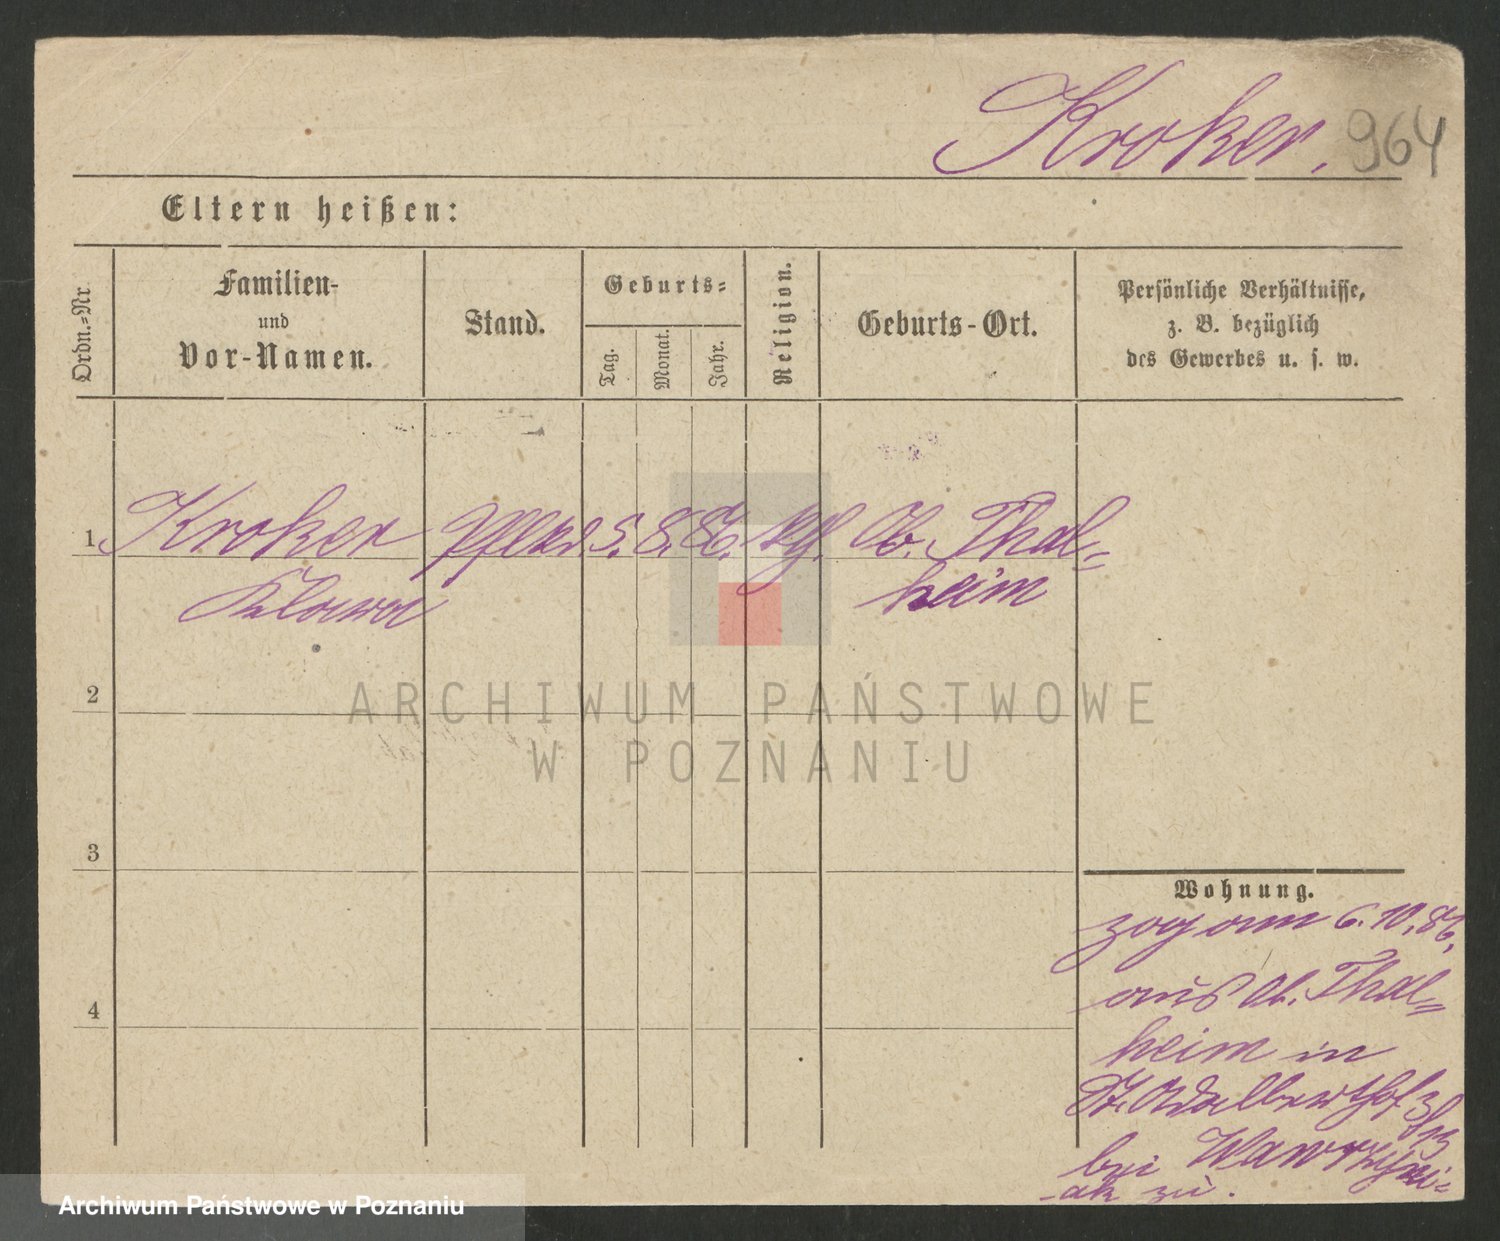 Kroker. 964
Eltern heißen:
Ordn.-Nr.
Familien-
und
Vor-Namen.
Stand.
Geburts-
Tag.
Monat.
Jahr.
Religion.
Geburts-Ort.
Persönliche Verhältnisse,
z. B. bezüglich
des Gewerbes u. s. w.
1 Kroker Pflkd 5. 8. 86. kth. Ob. Thal-
Klara heim
2
ARCHIWUM PAŃSTWOWE
W POZNANIU
3
Wohnung.
zog am 6.10.86.
aus Ob. Thal-
heim in
St. Adalberthof 3/13
bei Wawrzyni-
-ak zu.
4
Archiwum Państwowe w Poznaniu